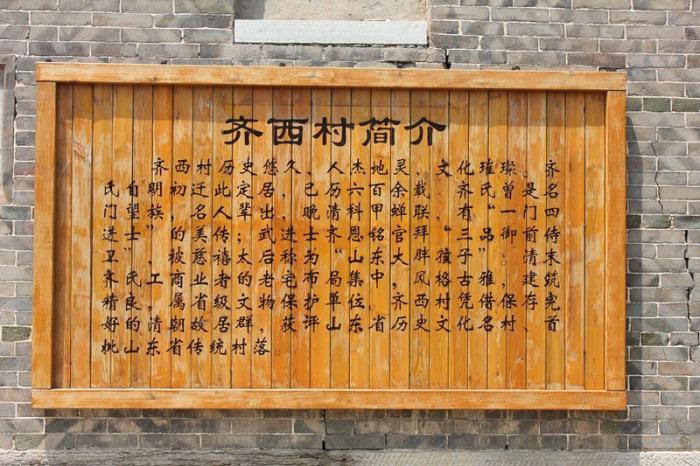 齐西村简介
齐西村历史悠久，人杰地灵，文化璀璨，齐
氏自明初迁此定居，已历六百余载，齐氏曾是名
门望族，名人辈出，晚清科甲蝉联，有“一门四
进士”的美传；武进士齐恩铭官拜三品御前侍
卫，被慈禧太后称为“山东大胖子”。清末
齐氏工商业者的老宅布局集中，风格古雅，建筑
精良，属省级文物保护单位。齐西村凭借保存完
好的清朝故居群，获评山东省历史文化名村、首
批山东省传统村落